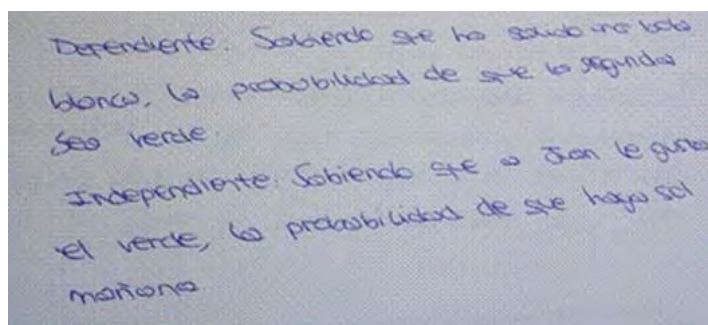 Dependiente. Sabiendo que ha salido una bola
blanca, la probabilidad de que la segunda
sea verde.
Independiente: Sabiendo que a Juan le gusta
el verde, la probabilidad de que haya sol
mañana